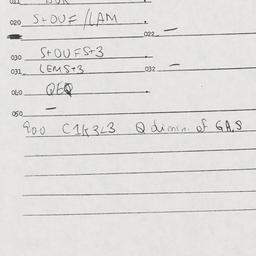 020 S+OUF/LAM
022 —
030 S+OUFS+3
031 LEMS+3 032 —
040 QEQ
050 —
900 C1K3L3 Q dimin. of GAS